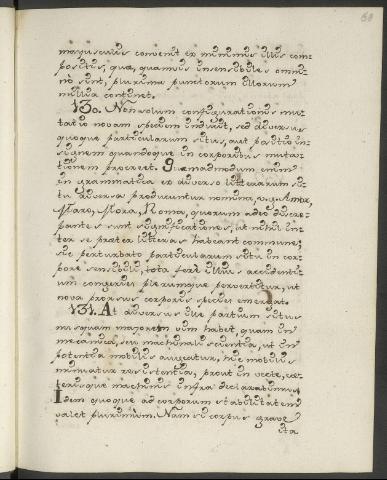 60
majusculis convenit ex minimis illis com-
positis, quæ, quamvis insensibiles omni-
no sint, plurima punctorum illorum
millia continet.
130. Non solum configurationis mu-
tatio novam speciem inducit, sed diversus
quoque particularum situs, aut positio in-
signem quandoque in corporibus muta-
tionem procreet. Quemadmodum enim
in grammatica ex diverso litterarum si-
tu diversa producuntur nomina, v.g. Amor,
Maro, Mora, Roma, quorum adeo discre-
pantes sunt significationes, ut nihil in-
ter se præter literas habeant commune;
sic perturbato particularum situ in cor-
pore sensibili, tota fere illius accidenti-
um congeries plerumque pervertitur, ut
nova prorsus corporis species emergat.
131. At diversus iste partium situs
nusquam majorem vim habet, quam in
mecanica, seu machinali scientia, ut in
potentia mobilis augeatur, hic mobilis
minuatur resistentia, prout in vecte, ce-
terisque machinis infra declarabimus.
Idem quoque ad corporum stabilitatem
valet plurimum. Nam si corpus grave
ita